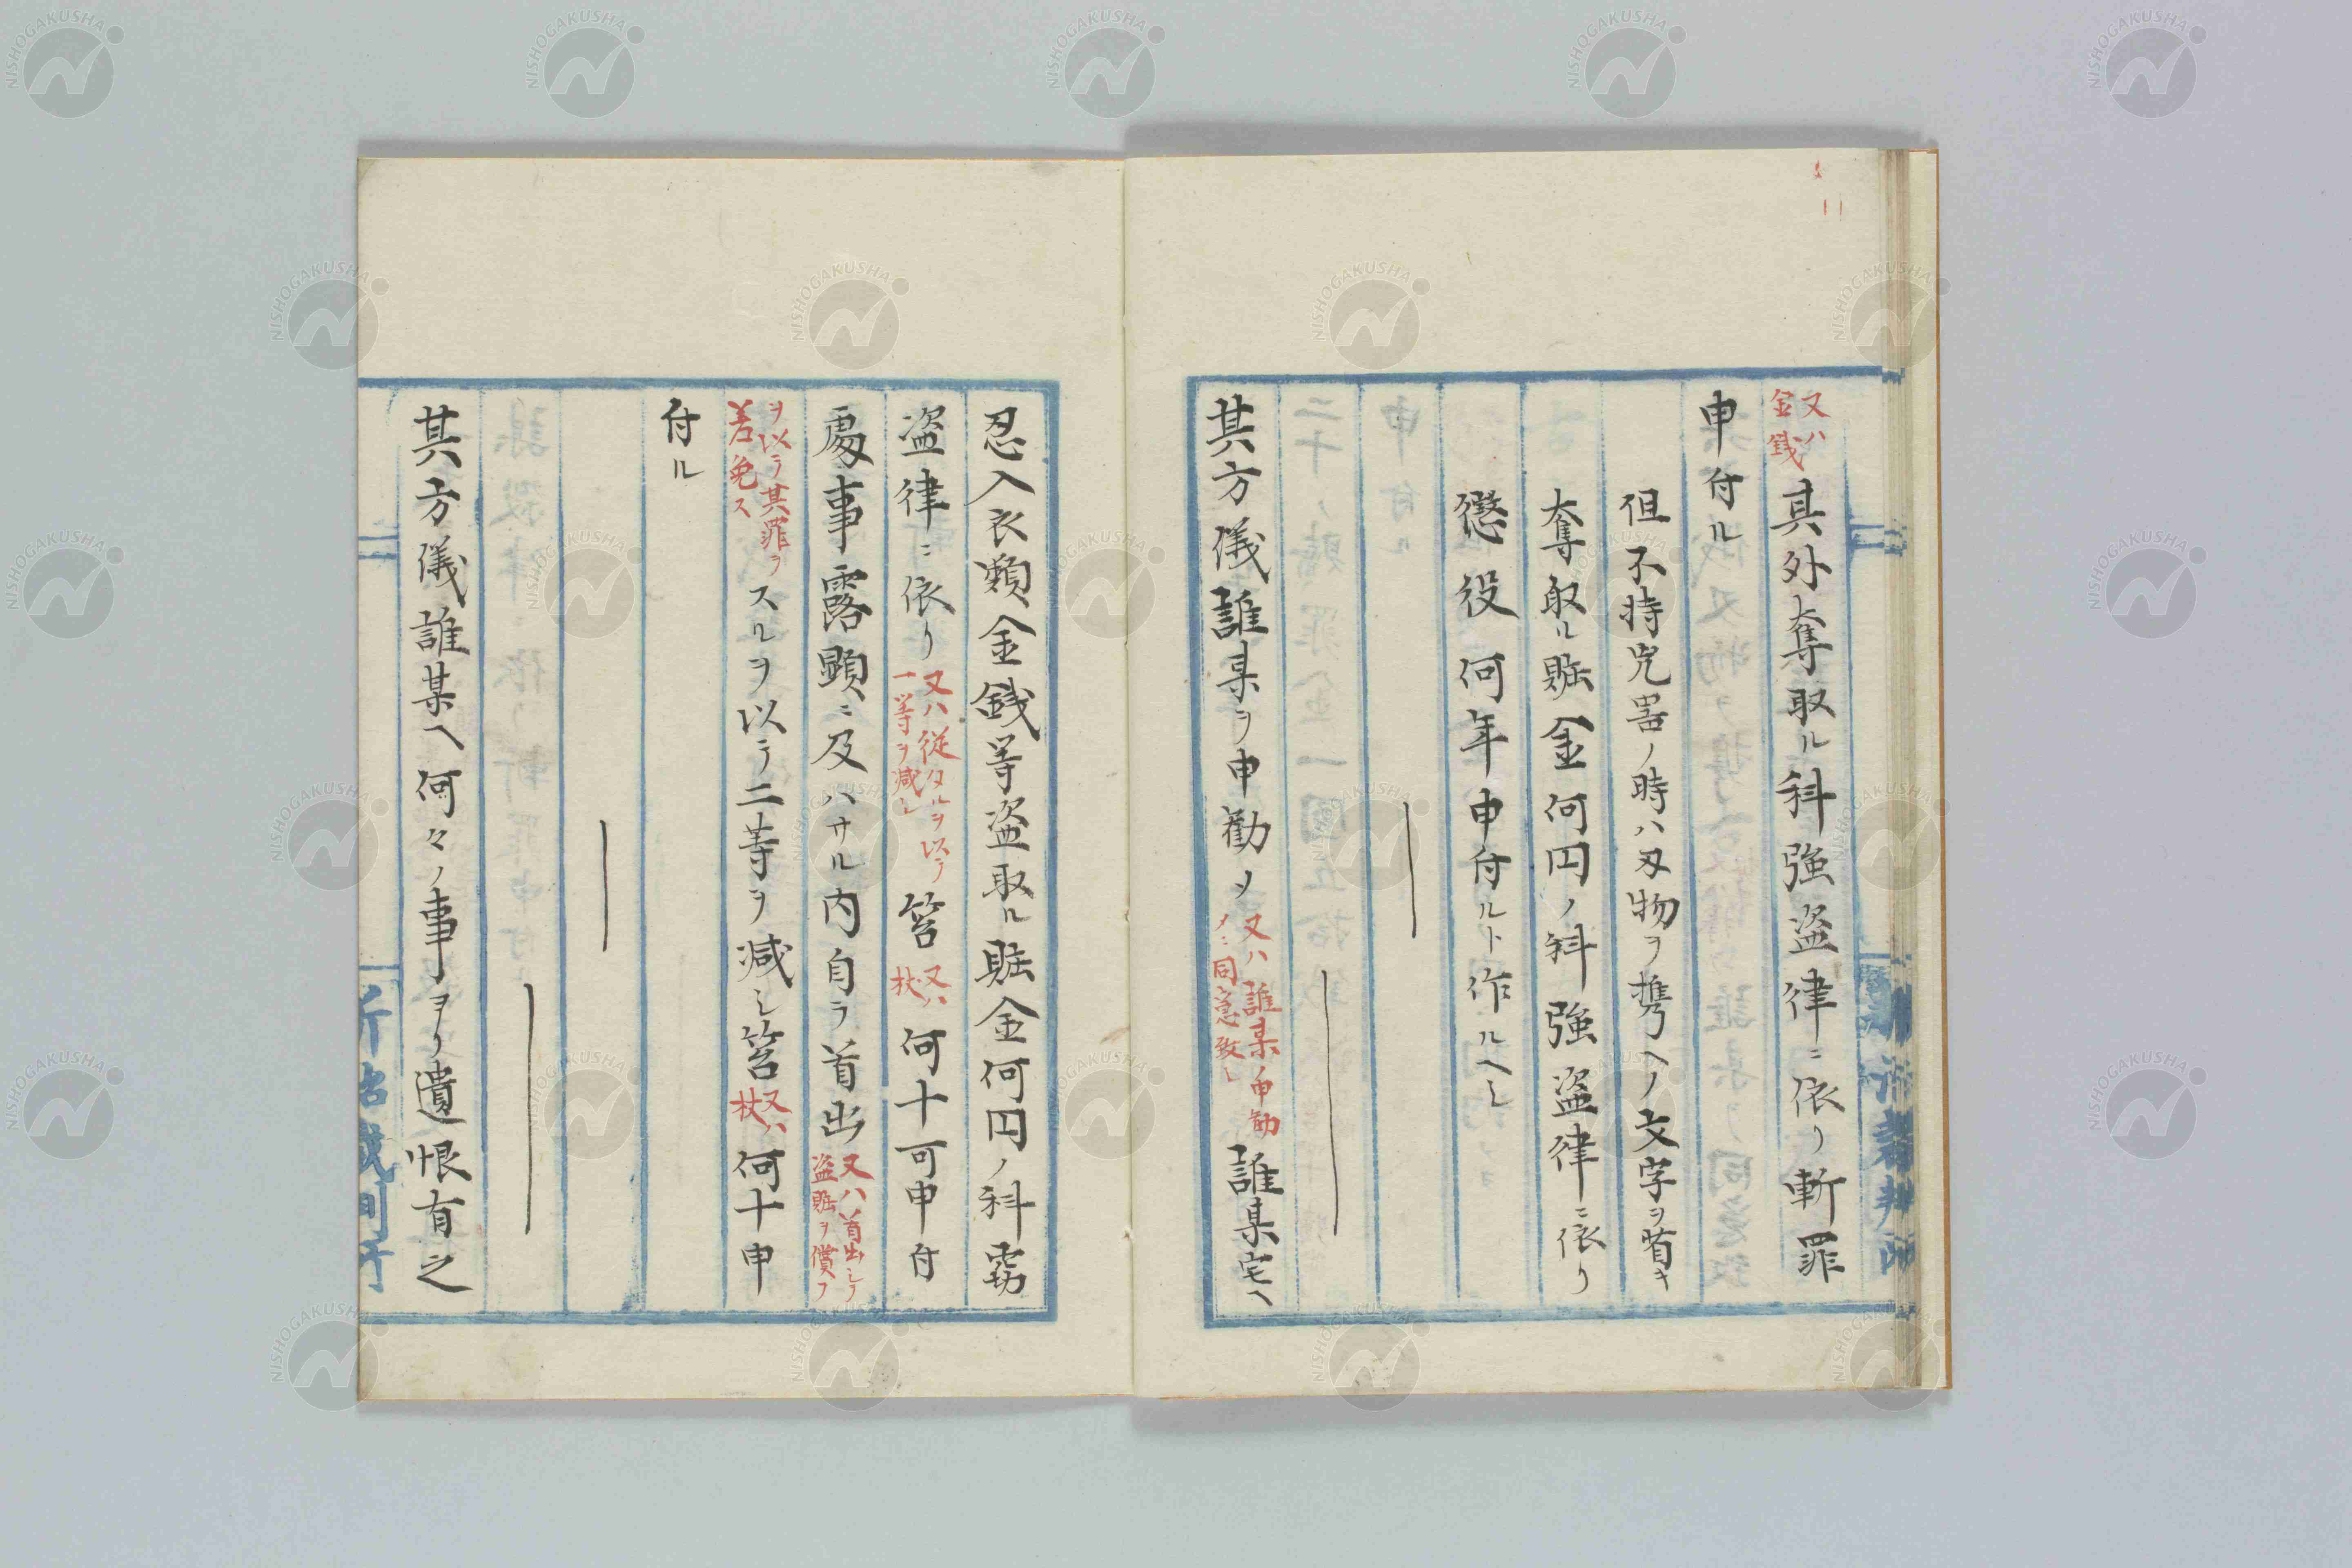 又ハ金銭其外奪取ル科強盗律ニ依リ斬罪
申付ル
但不持兇器ノ時ハ刃物ヲ携ヘノ文字ヲ省キ
奪取ル賍金何円ノ科強盗律ニ依リ
懲役何年申付ルト作ルヘシ
其方儀誰某ヲ申勧メ又ハ誰某申勧メニ同意致シ誰某宅ヘ
忍入衣類金銭等盗取ル賍金何円ノ科窃
盗律ニ依リ又ハ従タルヲ以テ一等ヲ減シ笞又ハ杖何十可申付
處事露顕ニ及ハサル内自ラ首出又ハ首出シテ盗賍ヲ償フ
ヲ以テ其罪ヲ若免ススルヲ以テ二等ヲ減シ笞又ハ杖何十申
付ル
其方儀誰某ヘ何々ノ事ヨリ遺恨有之
NISHOGAKUSHA